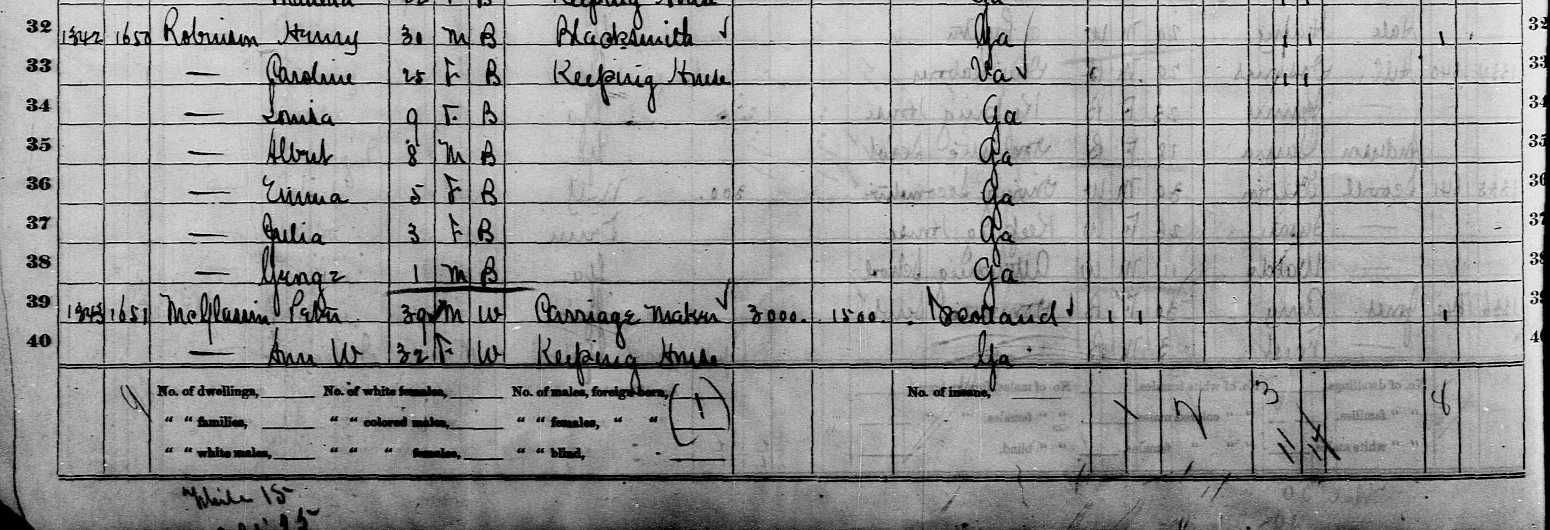 Keeping House Ga
32 1342 1650 Robinson Henry 30 M B Blacksmith Ga 1 1 1 32
33 — Caroline 25 F B Keeping House Va 1 1 33
34 — Louisa 9 F B Ga 34
35 — Albert 8 M B Ga 35
36 — Emma 5 F B Ga 36
37 — Julia 3 F B Ga 37
38 — 1 M B Ga 38
39 1343 1651 Peter 39 M W Carriage Maker 3000 1500 Scotland 1 1 1 39
40 — Ann W 32 F W Keeping House Ga 40
No. of dwellings, No. of white females, No. of males, foreign born, No. of insane, 3 8
" " families, " " colored males, " " females, " " 1
" " white males, " " " females, " " blind, 11 14
White 15